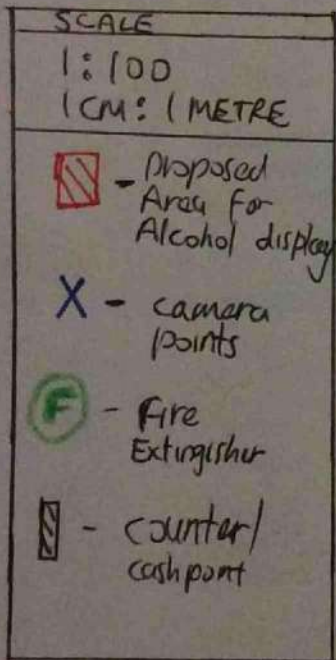 SCALE
1:100
1CM: 1 METRE
- Proposed
Area For
Alcohol display
X - camera
points
F - Fire
Extingisher
- counter/
cashpoint